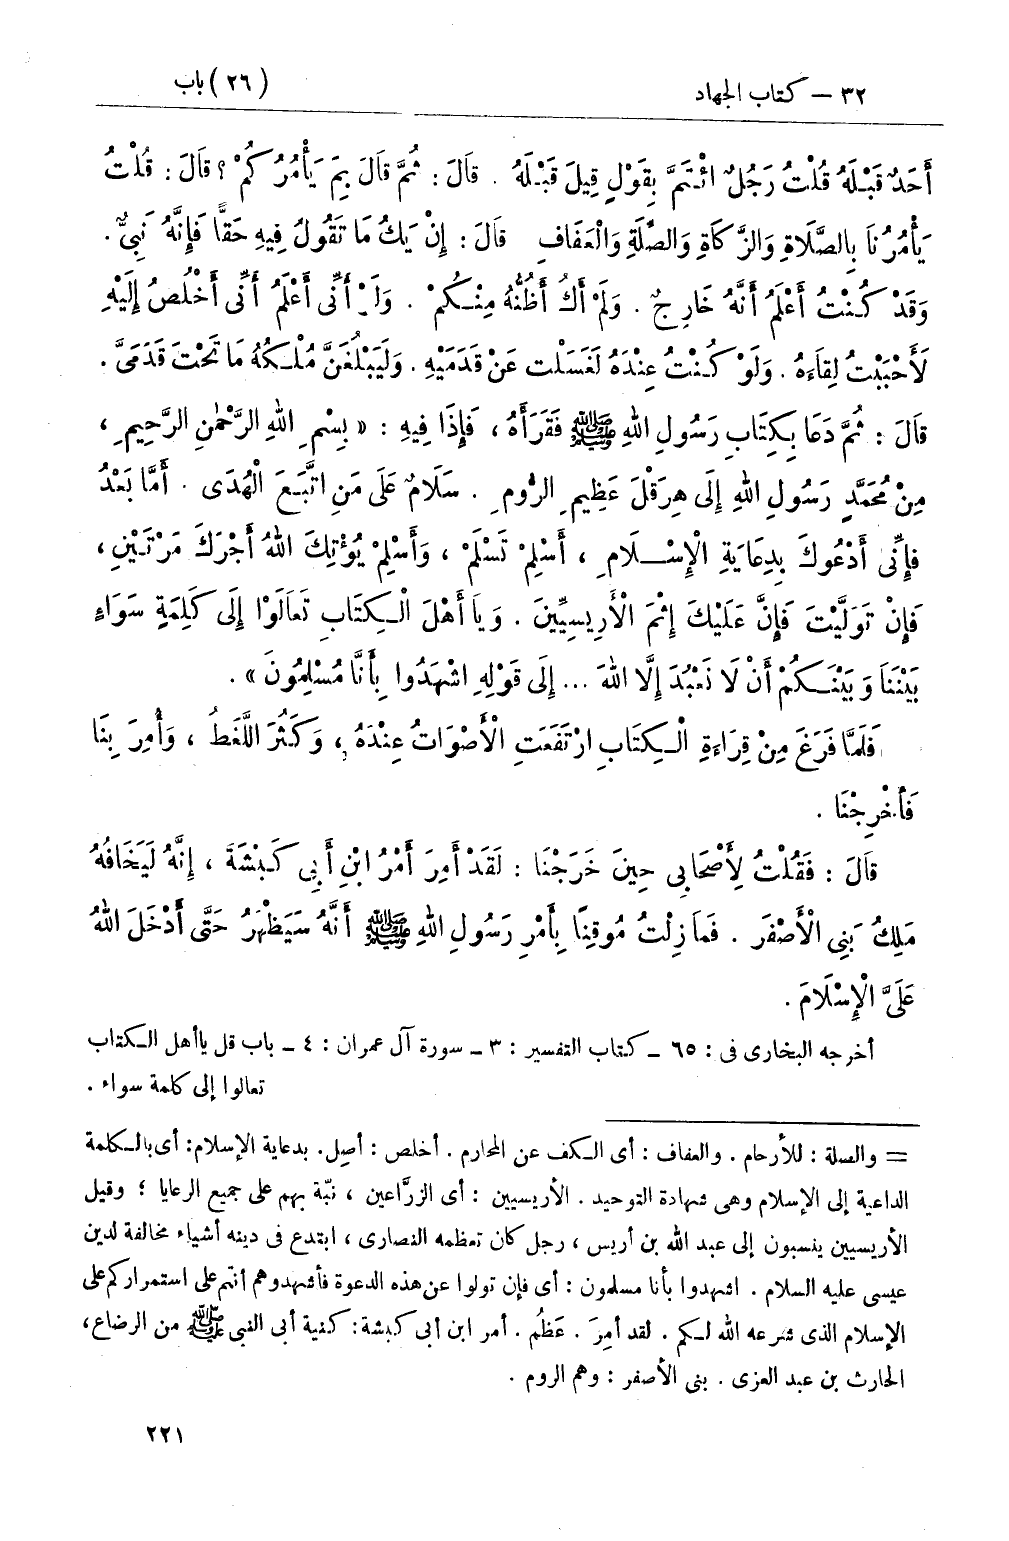 ٣٢ – كتاب الجهاد (٢٦) باب
أَحَدٌ قَبْلَهُ قُلْتُ رَجُلٌ ائْتَمَّ بِقَوْلٍ قِيلَ قَبْلَهُ . قَالَ : ثُمَّ قَالَ بِمَ يَأْمُرُ كُمْ ؟ قَالَ : قُلْتُ
يَأْمُرُنَا بِالصَّلَاةِ وَالزَّكَاةِ وَالصِّلَةِ وَالْعَفَافِ قَالَ : إِنْ يَكُ مَا تَقُولُ فِيهِ حَقًّا فَإِنَّهُ نَبِيٌّ .
وَقَدْ كُنْتُ أَعْلَمُ أَنَّهُ خَارِجٌ . وَلَمْ أَكُ أَظُنُّهُ مِنْكُمْ . وَلَوْ أَنِّي أَعْلَمُ أَنِّي أَخْلُصُ إِلَيْهِ
لَأَحْبَبْتُ لِقَاءَهُ . وَلَوْ كُنْتُ عِنْدَهُ لَغَسَلْت عَنْ قَدَمَيْهِ . وَلَيَبْلُغَنَّ مُلْكُهُ مَا تَحْتَ قَدَمَيَّ .
قَالَ : ثُمَّ دَعَا بِكِتَابِ رَسُولِ اللهِ ﷺ فَقَرَأَهُ ، فَإِذَا فِيهِ : « بِسْمِ اللهِ الرَّحْمٰنِ الرَّحِيمِ ،
مِنْ مُحَمَّدٍ رَسُولِ اللهِ إِلَى هِرَقْلَ عَظِيمِ الرُّومِ . سَلَامٌ عَلَى مَنِ اتَّبَعَ الْهُدَى . أَمَّا بَعْدُ
فَإِنِّي أَدْعُوكَ بِدِعَايَةِ الْإِسْلَامِ ، أَسْلِمْ تَسْلَمْ ، وَأَسْلِمْ يُؤْتِكَ اللهُ أَجْرَكَ مَرَّتَيْنِ ،
فَإِنْ تَوَلَّيْتَ فَإِنَّ عَلَيْكَ إِثْمَ الْأَرِيسِيِّينَ . وَيَا أَهْلَ الْكِتَابِ تَعَالَوْا إِلَى كَلِمَةٍ سَوَاءٍ
بَيْنَنَا وَبَيْنَكُمْ أَنْ لَا نَعْبُدَ إِلَّا اللهَ ... إِلَى قَوْلِهِ اشْهَدُوا بِأَنَّا مُسْلِمُونَ » .
فَلَمَّا فَرَغَ مِنْ قِرَاءَةِ الْكِتَابِ ارْتَفَعَتِ الْأَصْوَاتُ عِنْدَهُ ، وَكَثُرَ اللَّغَطُ ، وَأُمِرَ بِنَا
فَأُخْرِجْنَا .
قَالَ : فَقُلْتُ لِأَصْحَابِي حِينَ خَرَجْنَا : لَقَدْ أَمِرَ أَمْرُ ابْنِ أَبِي كَبْشَةَ ، إِنَّهُ لَيَخَافُهُ
مَلِكُ بَنِي الْأَصْفَرِ . فَمَا زِلْتُ مُوقِنًا بِأَمْرِ رَسُولِ اللهِ ﷺ أَنَّهُ سَيَظْهَرُ حَتَّى أَدْخَلَ اللهُ
عَلَيَّ الْإِسْلَامَ .
أخرجه البخارى فى : ٦٥ – كتاب التفسير : ٣ – سورة آل عمران : ٤ – باب قل ياأهل الكتاب
تعالوا إلى كلمة سواء .
= والصلة : للأرحام . والعفاف : أى الكف عن المحارم . أخلص : أصِل. بدعاية الإسلام: أى بالكلمة
الداعية إلى الإسلام وهى شهادة التوحيد . الأريسيين : أى الزرَّاعين ، نبّه بهم على جميع الرعايا ؛ وقيل
الأريسيين ينسبون إلى عبد الله بن أريس ، رجل كان تعظمه النصارى ، ابتدع فى دينه أشياء مخالفة لدين
عيسى عليه السلام . اشهدوا بأنا مسلمون : أى فإن تولوا عن هذه الدعوة فأشهدوهم أنتم على استمراركم على
الإسلام الذى شرعه الله لكم . لقد أمِرَ . عَظُم . أمر ابن أبى كبشة: كنية أبى النبى ﷺ من الرضاع،
الحارث بن عبد العزى . بنى الأصفر : وهم الروم .
٢٢١